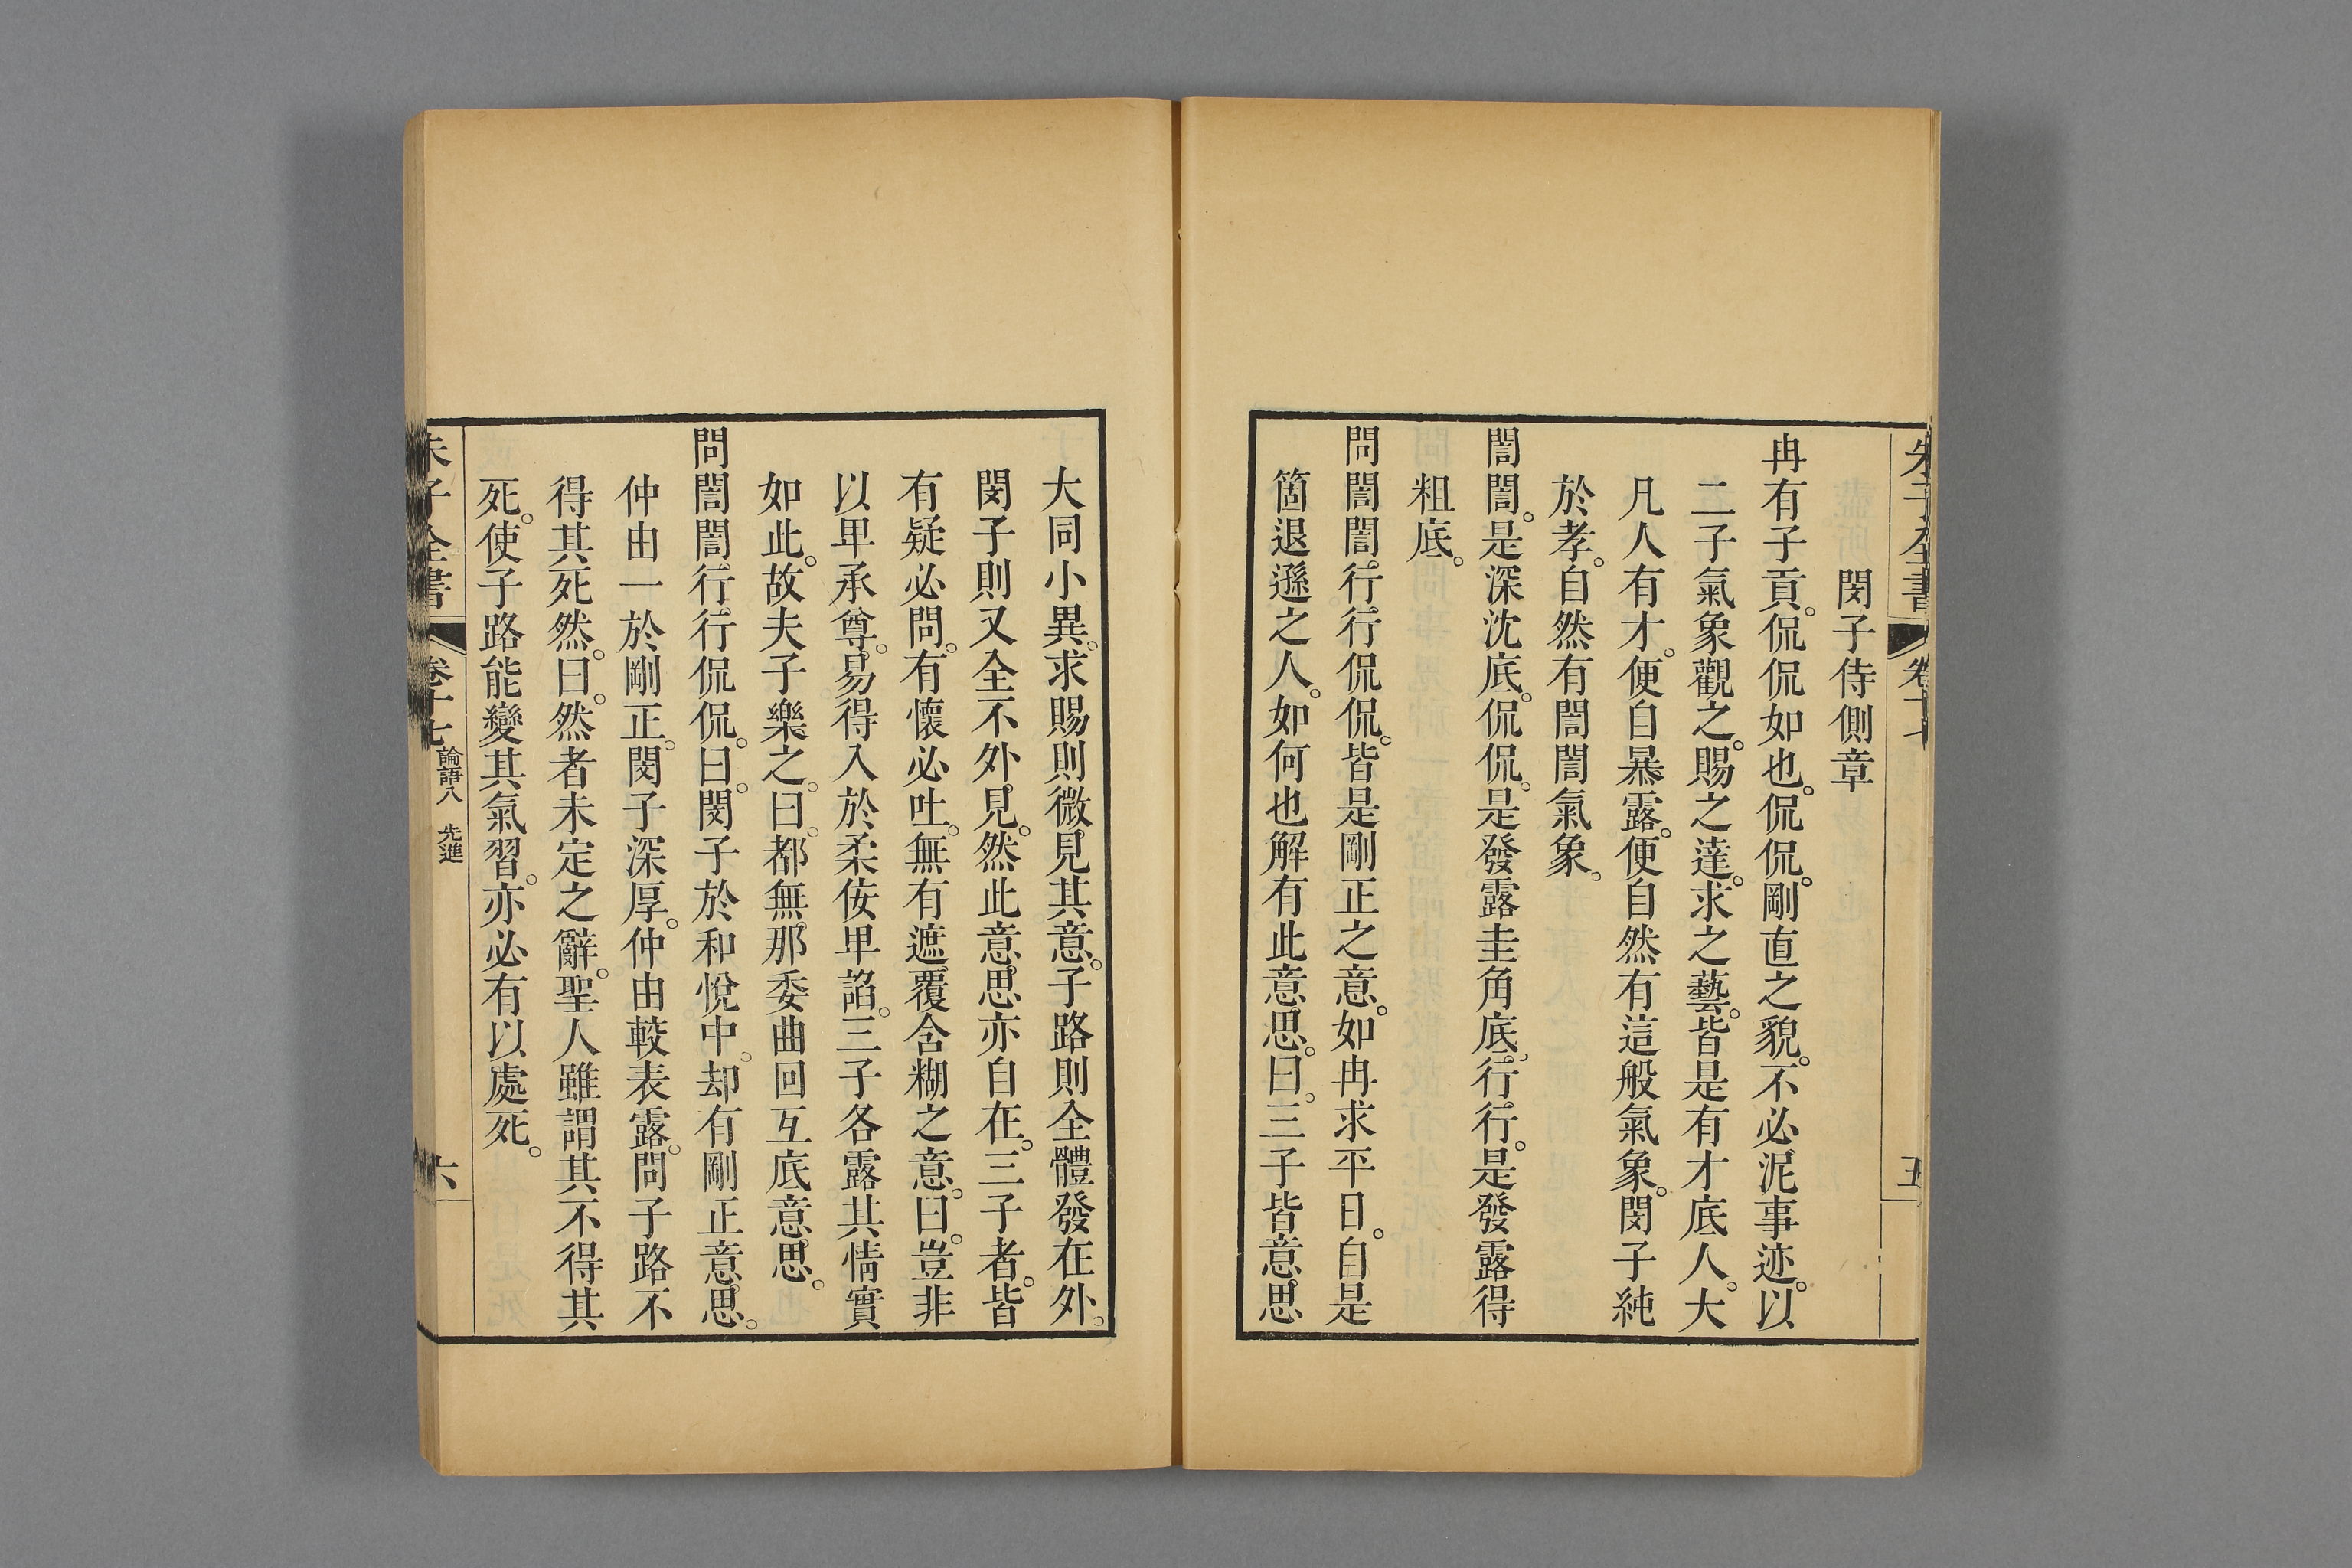 朱子全書 卷十七 五
閔子侍側章
冉有子貢。侃侃如也。侃侃。剛直之貌。不必泥事迹。以
二子氣象觀之。賜之達。求之藝。皆是有才底人。大
凡人有才。便自暴露。便自然有這般氣象。閔子純
於孝。自然有誾誾氣象。
誾誾。是深沈底。侃侃。是發露圭角底。行行。是發露得
粗底。
問誾誾。行行。侃侃。皆是剛正之意。如冉求平日。自是
箇退遜之人。如何也解有此意思。曰。三子皆意思
大同小異。求賜則微見其意。子路則全體發在外。
閔子則又全不外見。然此意思亦自在。三子者。皆
有疑必問。有懷必吐。無有遮覆含糊之意。曰。豈非
以卑承尊。易得入於柔佞卑諂。三子各露其情實
如此。故夫子樂之。曰。都無那委曲回互底意思。
問誾誾。行行。侃侃。曰。閔子於和悅中。却有剛正意思。
仲由一於剛正。閔子深厚。仲由較表露。問子路不
得其死然。曰。然者未定之辭。聖人雖謂其不得其
死。使子路能變其氣習。亦必有以處死。
朱子全書 卷十七 論語八 先進 六